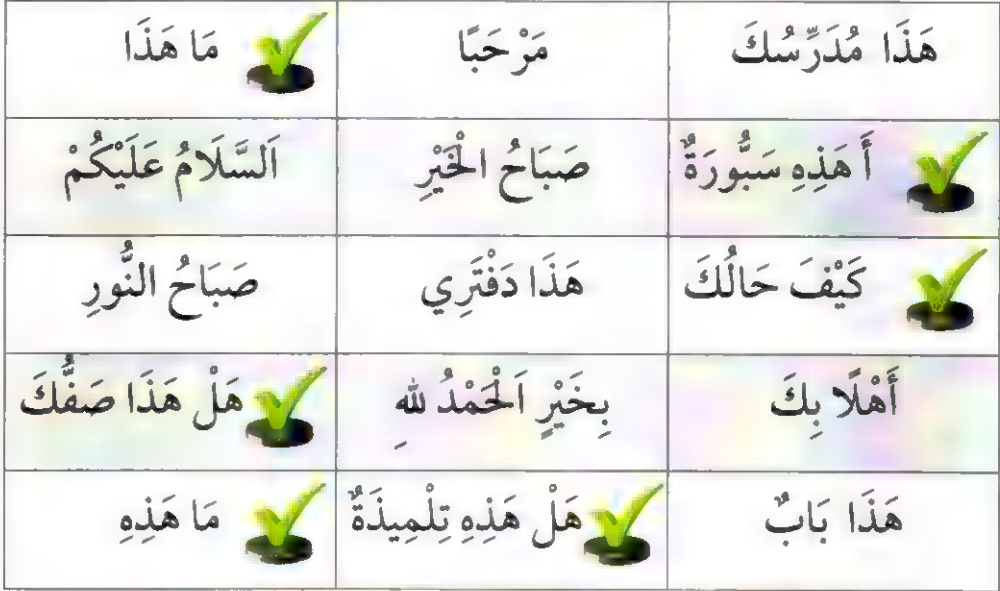 هَذَا مُدَرِّسُكَ
مَرْحَبًا
مَا هَذَا
أَ هَذِهِ سَبُّورَةٌ
صَبَاحُ الْخَيْرِ
اَلسَّلَامُ عَلَيْكُمْ
كَيْفَ حَالُكَ
هَذَا دَفْتَرِي
صَبَاحُ النُّورِ
أَهْلًا بِكَ
بِخَيْرٍ اَلْحَمْدُ للهِ
هَلْ هَذَا صَفُّكَ
هَذَا بَابٌ
هَلْ هَذِهِ تِلْمِيذَةٌ
مَا هَذِهِ